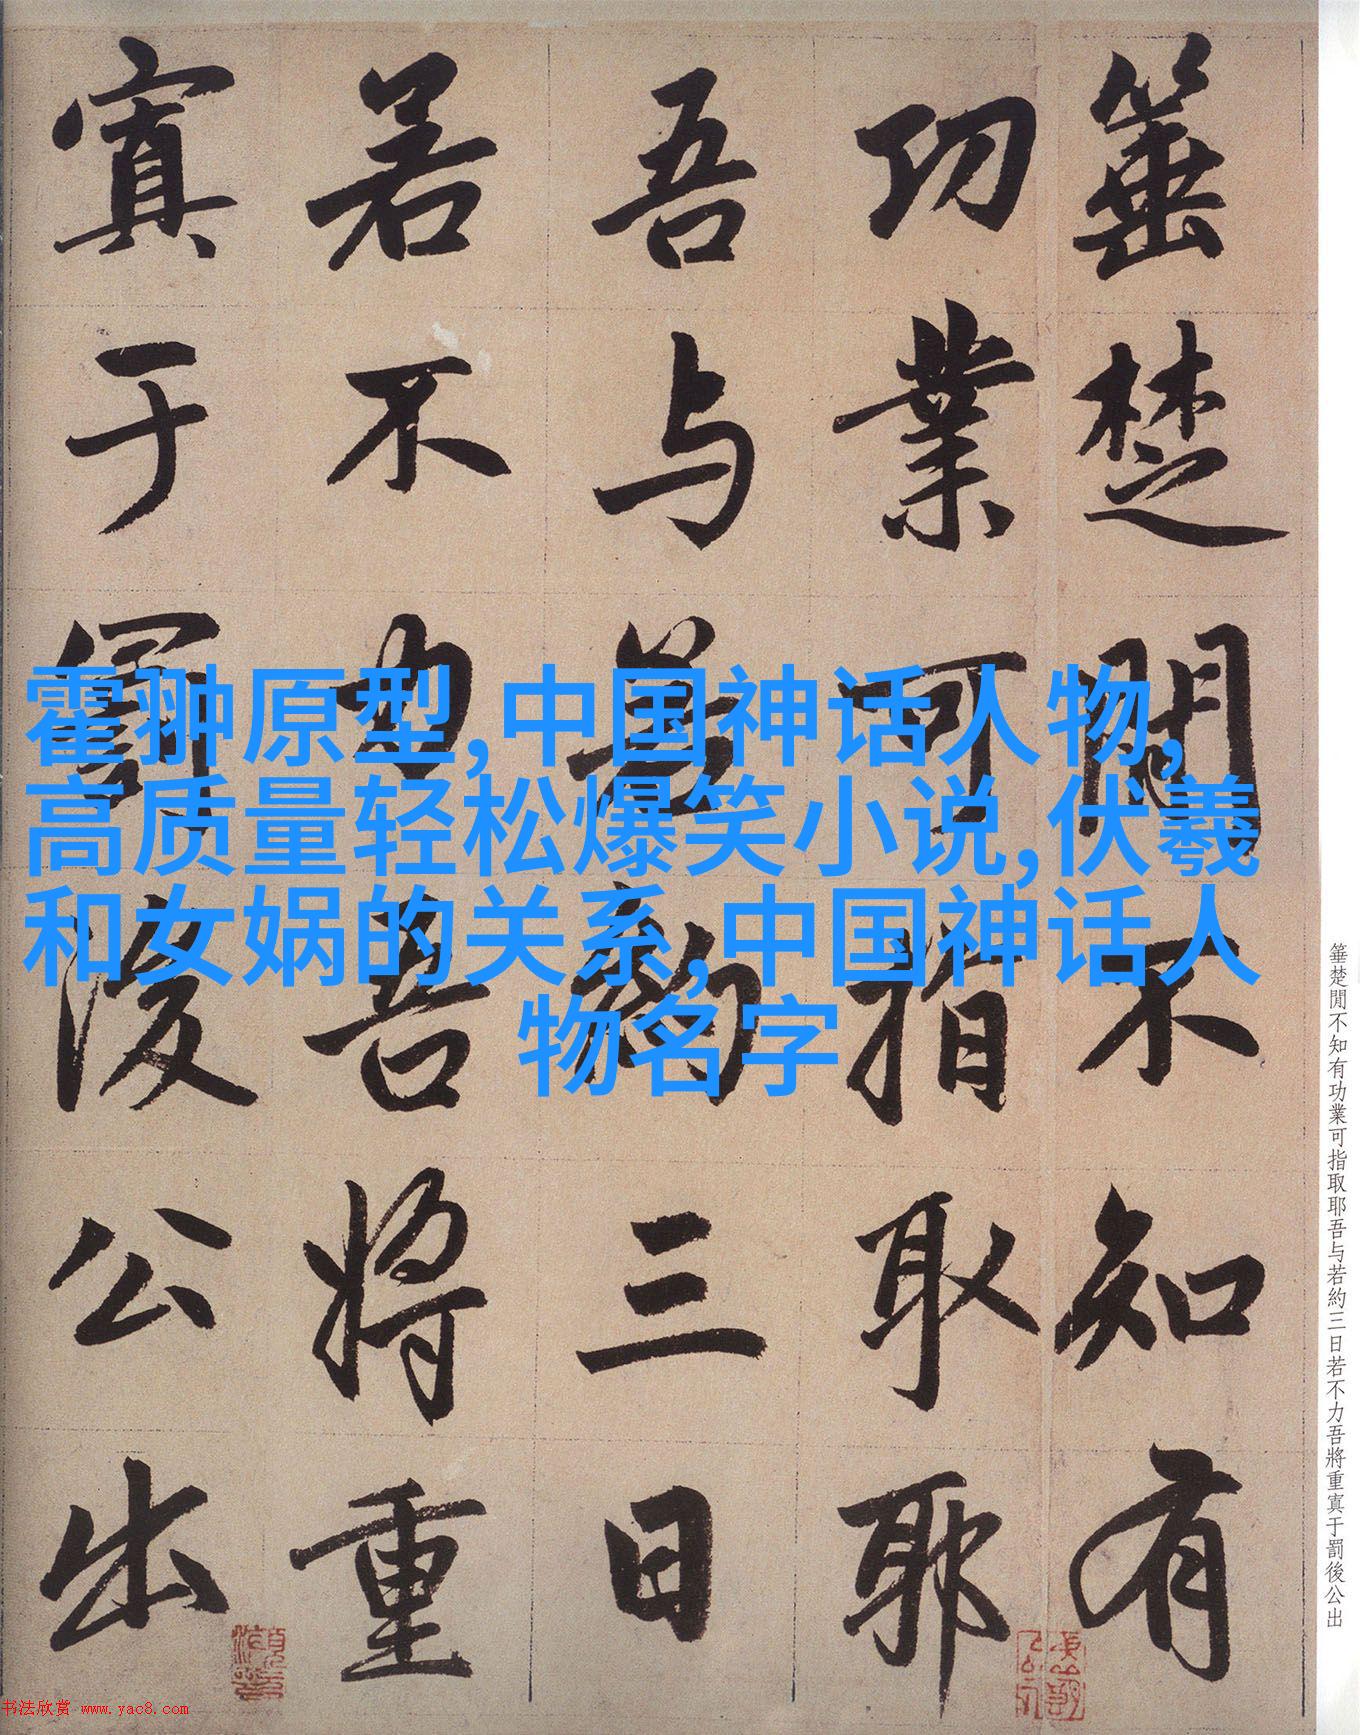 箠楚閒不知有
功業可指取耶
吾与若約三日
若不力吾將重
寘于罰後公出
霍翀原型,中国神话人物,
高质量轻松爆笑小说,伏羲
和女娲的关系,中国神话人
物名字
箠楚閒不知有功業可指取耶吾与若約三日若不力吾將重寘于罰後公出
书法欣赏 www.yac8.com